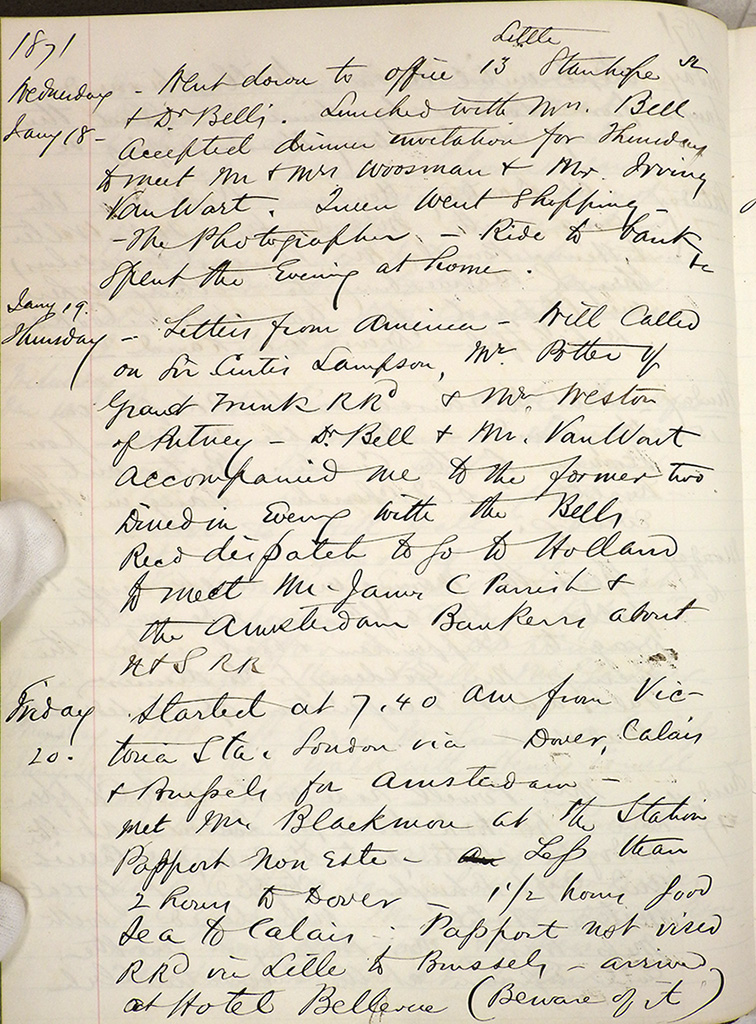 1871
Little
Wednesday - Went down to office 13 Stanhope St
Jany 18 - + Dr Bell's. Lunched with Mrs. Bell
Accepted dinner invitation for Thursday
to meet Mr + Mrs Woosman + Mr. Irving
VanWart. Queen Went Shopping -
- The Photographer - Ride to bank &c
Spent the Evening at home.
Jany 19.
Thursday - Letters from America - Will Called
on Sir Curtis Lampson, Mr. Potter of
Grand Trunk RRd & Mr Weston
of Putney - Dr Bell + Mr. VanWart
accompanied me to the former two
Dined in Evening with the Bells
Recd dispatch to go to Holland
to meet Mr James C Parrish +
the Amsterdam Bankers about
RR
Friday Started at 7.40 am from Vic-
20. toria Sta. London via Dover, Calais
+ Brussels for Amsterdam -
met Mr Blackmore at the Station
Passport Non Este - Less than
2 hours to Dover - 1 1/2 hours good
Sea to Calais - Passport not vised
RRd via Lille to Brussels - arrived
at Hotel Bellevue (Beware of it)